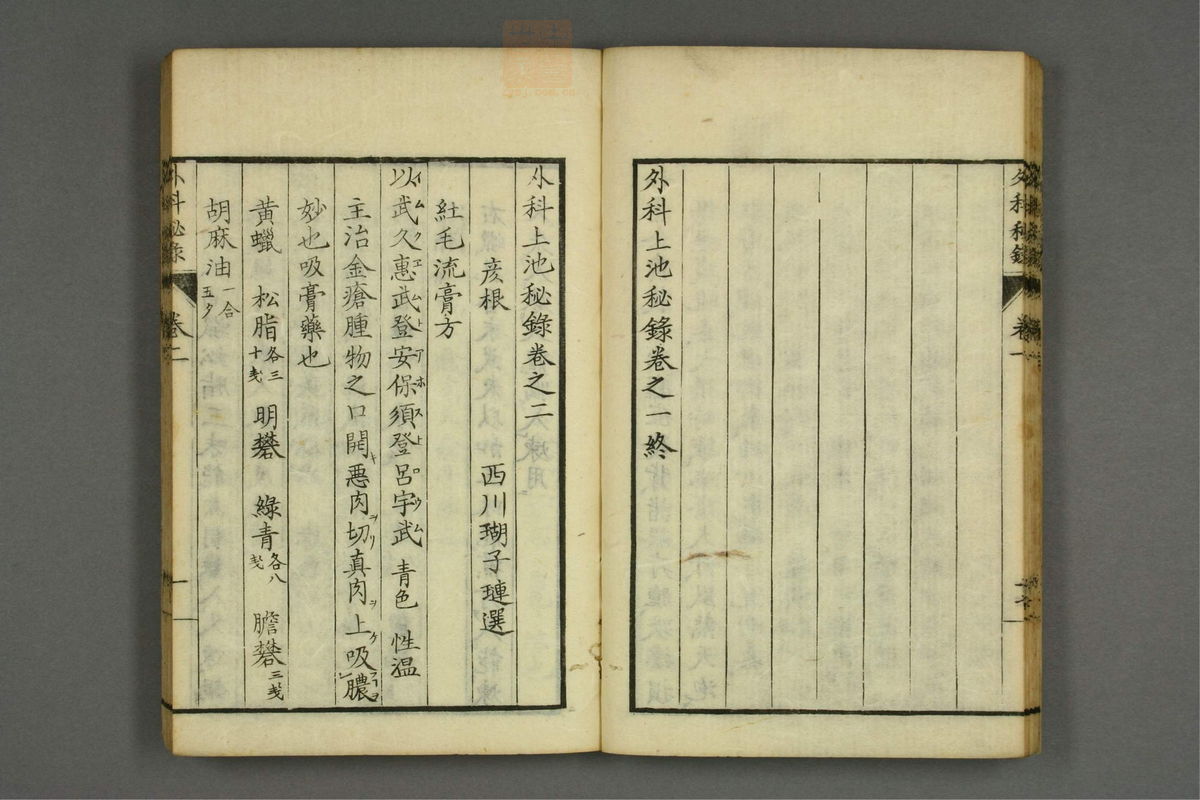 外科上池秘錄卷之一終
外科秘錄
卷一
外科上池秘錄卷之二
彦根　西川瑚子璉選
紅毛流膏方
以武久惠武登安保須登呂宇武　青色　性温
イムクエムトアホストロウム
主治金瘡腫物之口開悪肉切真肉上吸膿
キ ヲリ ヲ ケ
妙也吸膏藥也
黄蠟　松脂各三十戔　明礬　綠青各八戔　膽礬三戔
胡麻油一合五夕
外科秘錄
卷二
一